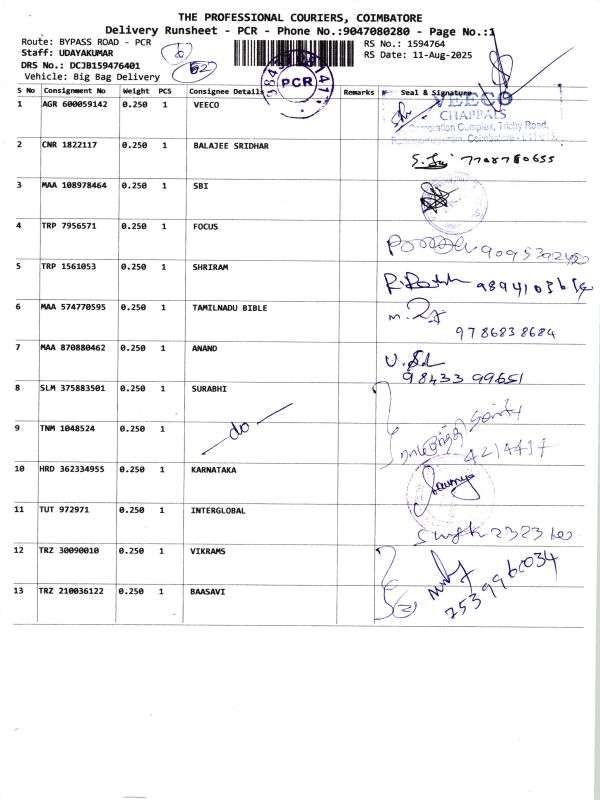 THE PROFESSIONAL COURIERS, COIMBATORE
Delivery Runsheet - PCR - Phone No.:9047080280 - Page No.:1
Route: BYPASS ROAD - PCR RS No.: 1594764
Staff: UDAYAKUMAR RS Date: 11-Aug-2025
DRS No.: DCJB159476401
Vehicle: Big Bag Delivery
PCR
S No Consignment No Weight PCS Consignee Details Remarks Seal & Signature
1 AGR 600059142 0.250 1 VEECO
VEECO
CHAPPALS
Corporation Complex, Trichy Road,
2 CNR 1822117 0.250 1 BALAJEE SRIDHAR
7708780655
3 MAA 108978464 0.250 1 SBI
4 TRP 7956571 0.250 1 FOCUS
5 TRP 1561053 0.250 1 SHRIRAM
6 MAA 574770595 0.250 1 TAMILNADU BIBLE
9786838684
7 MAA 870880462 0.250 1 ANAND
98433 99651
8 SLM 375883501 0.250 1 SURABHI
9 TNM 1048524 0.250 1 do
4214414
10 HRD 362334955 0.250 1 KARNATAKA
11 TUT 972971 0.250 1 INTERGLOBAL
12 TRZ 30090010 0.250 1 VIKRAMS
13 TRZ 210036122 0.250 1 BAASAVI
(2)